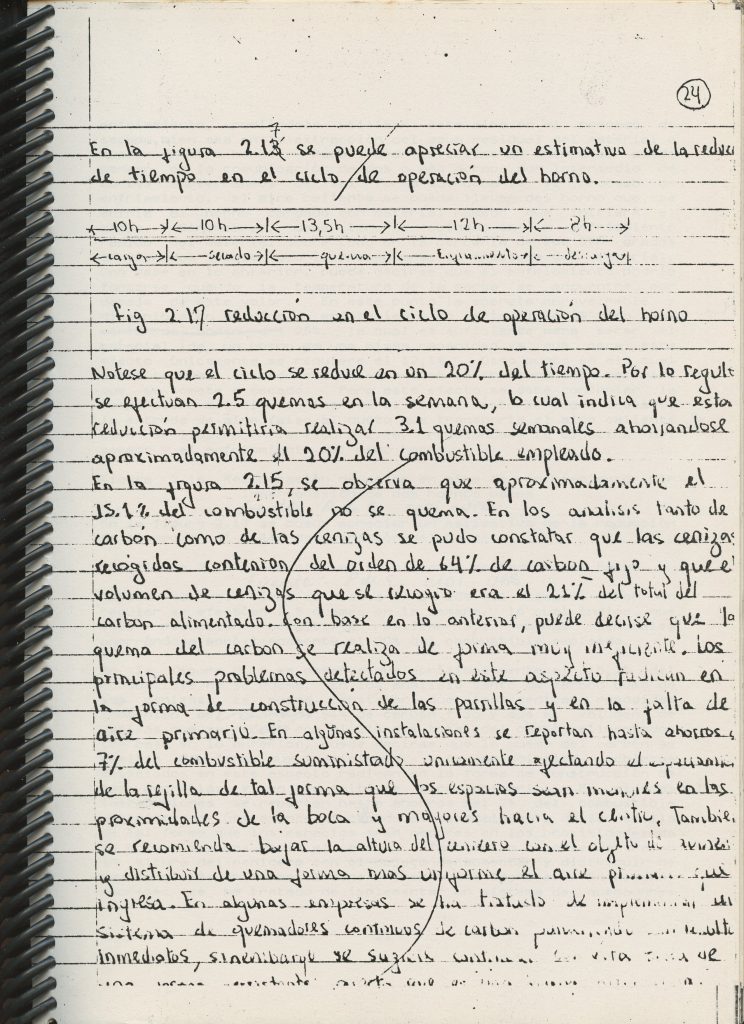 24
7
En la figura 2.13 se puede apreciar un estimativo de la reduc
de tiempo en el ciclo de operación del horno.
10h 10h 13,5h 12h 8h
cargar secado quema
fig 2.17 reducción en el ciclo de operación del horno
Notese que el ciclo se reduce en un 20% del tiempo. Por lo regul
se efectuan 2.5 quemas en la semana, lo cual indica que esta
reducción permitiria realizar 3.1 quemas semanales ahorrandose
aproximadamente el 20% del combustible empleado.
En la figura 2.15, se observa que aproximadamente el
15.1% del combustible no se quema. En los analisis tanto de
carbón como de las cenizas se pudo constatar que las cenizas
recogidas contenian del orden de 64% de carbon fijo y que el
volumen de cenizas que se recogio era el 21% del total del
carbon alimentado. Con base en lo anterior, puede decirse que la
quema del carbon se realiza de forma muy ineficiente. Los
principales problemas detectados en este aspecto radican en
la forma de construcción de las parrillas y en la falta de
aire primario. En algunas instalaciones se reportan hasta ahorros
7% del combustible suministrado unicamente afectando el
de la rejilla de tal forma que los espacios sean menores en las
proximidades de la boca y mayores hacia el centro. Tambie
se recomienda bajar la altura del cenicero con el objeto de
y distribuir de una forma mas uniforme el aire que
ingresa. En algunas empresas se ha tratado de un
sistema de quemadores continuos de carbon
inmediatos, sinembargo se